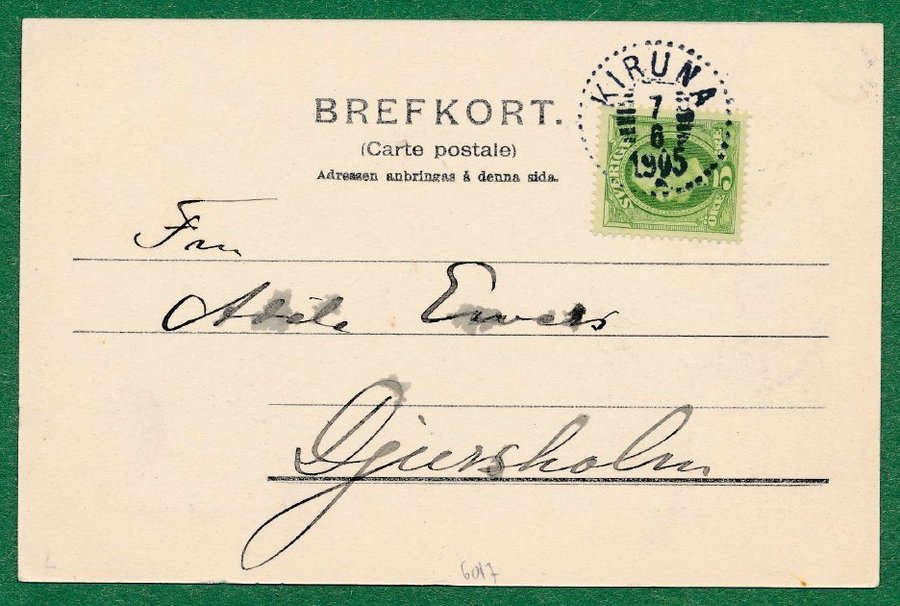 KIRUNA
7
8
1905
BREFKORT.
(Carte postale)
Adressen anbringas å denna sida.
SVERIGE
5
ÖRE
Fru
Adèle Ewers
Djursholm
6017